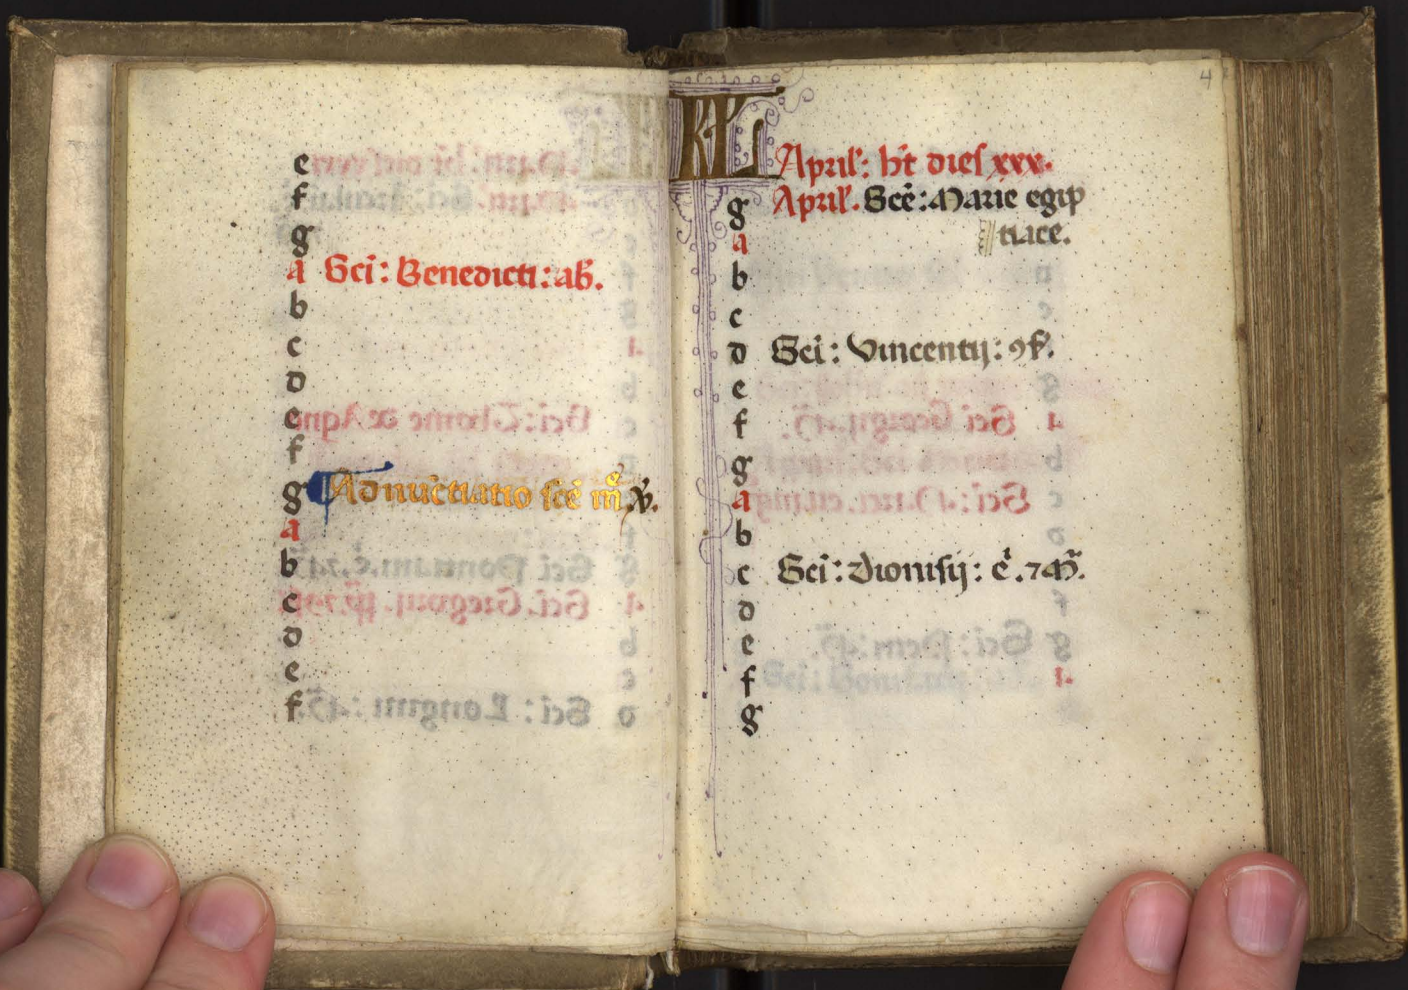 e
f
g
a Sci̅: Benedicti: ab̅.
b
c
d
e
f
g Adnu̅ctiatio sce̅ m̅e x̅v̅.
a
b
c
d
e
f
4
KL April': h̅t dies xxx.
g April'. Sce̅: Marie egip
a tiace.
b
c
d Sci̅: Vincentij: ꝯf̅.
e
f
g
a
b
c Sci̅: Dionisij: e̅. ⁊ M̅.
d
e
f
g